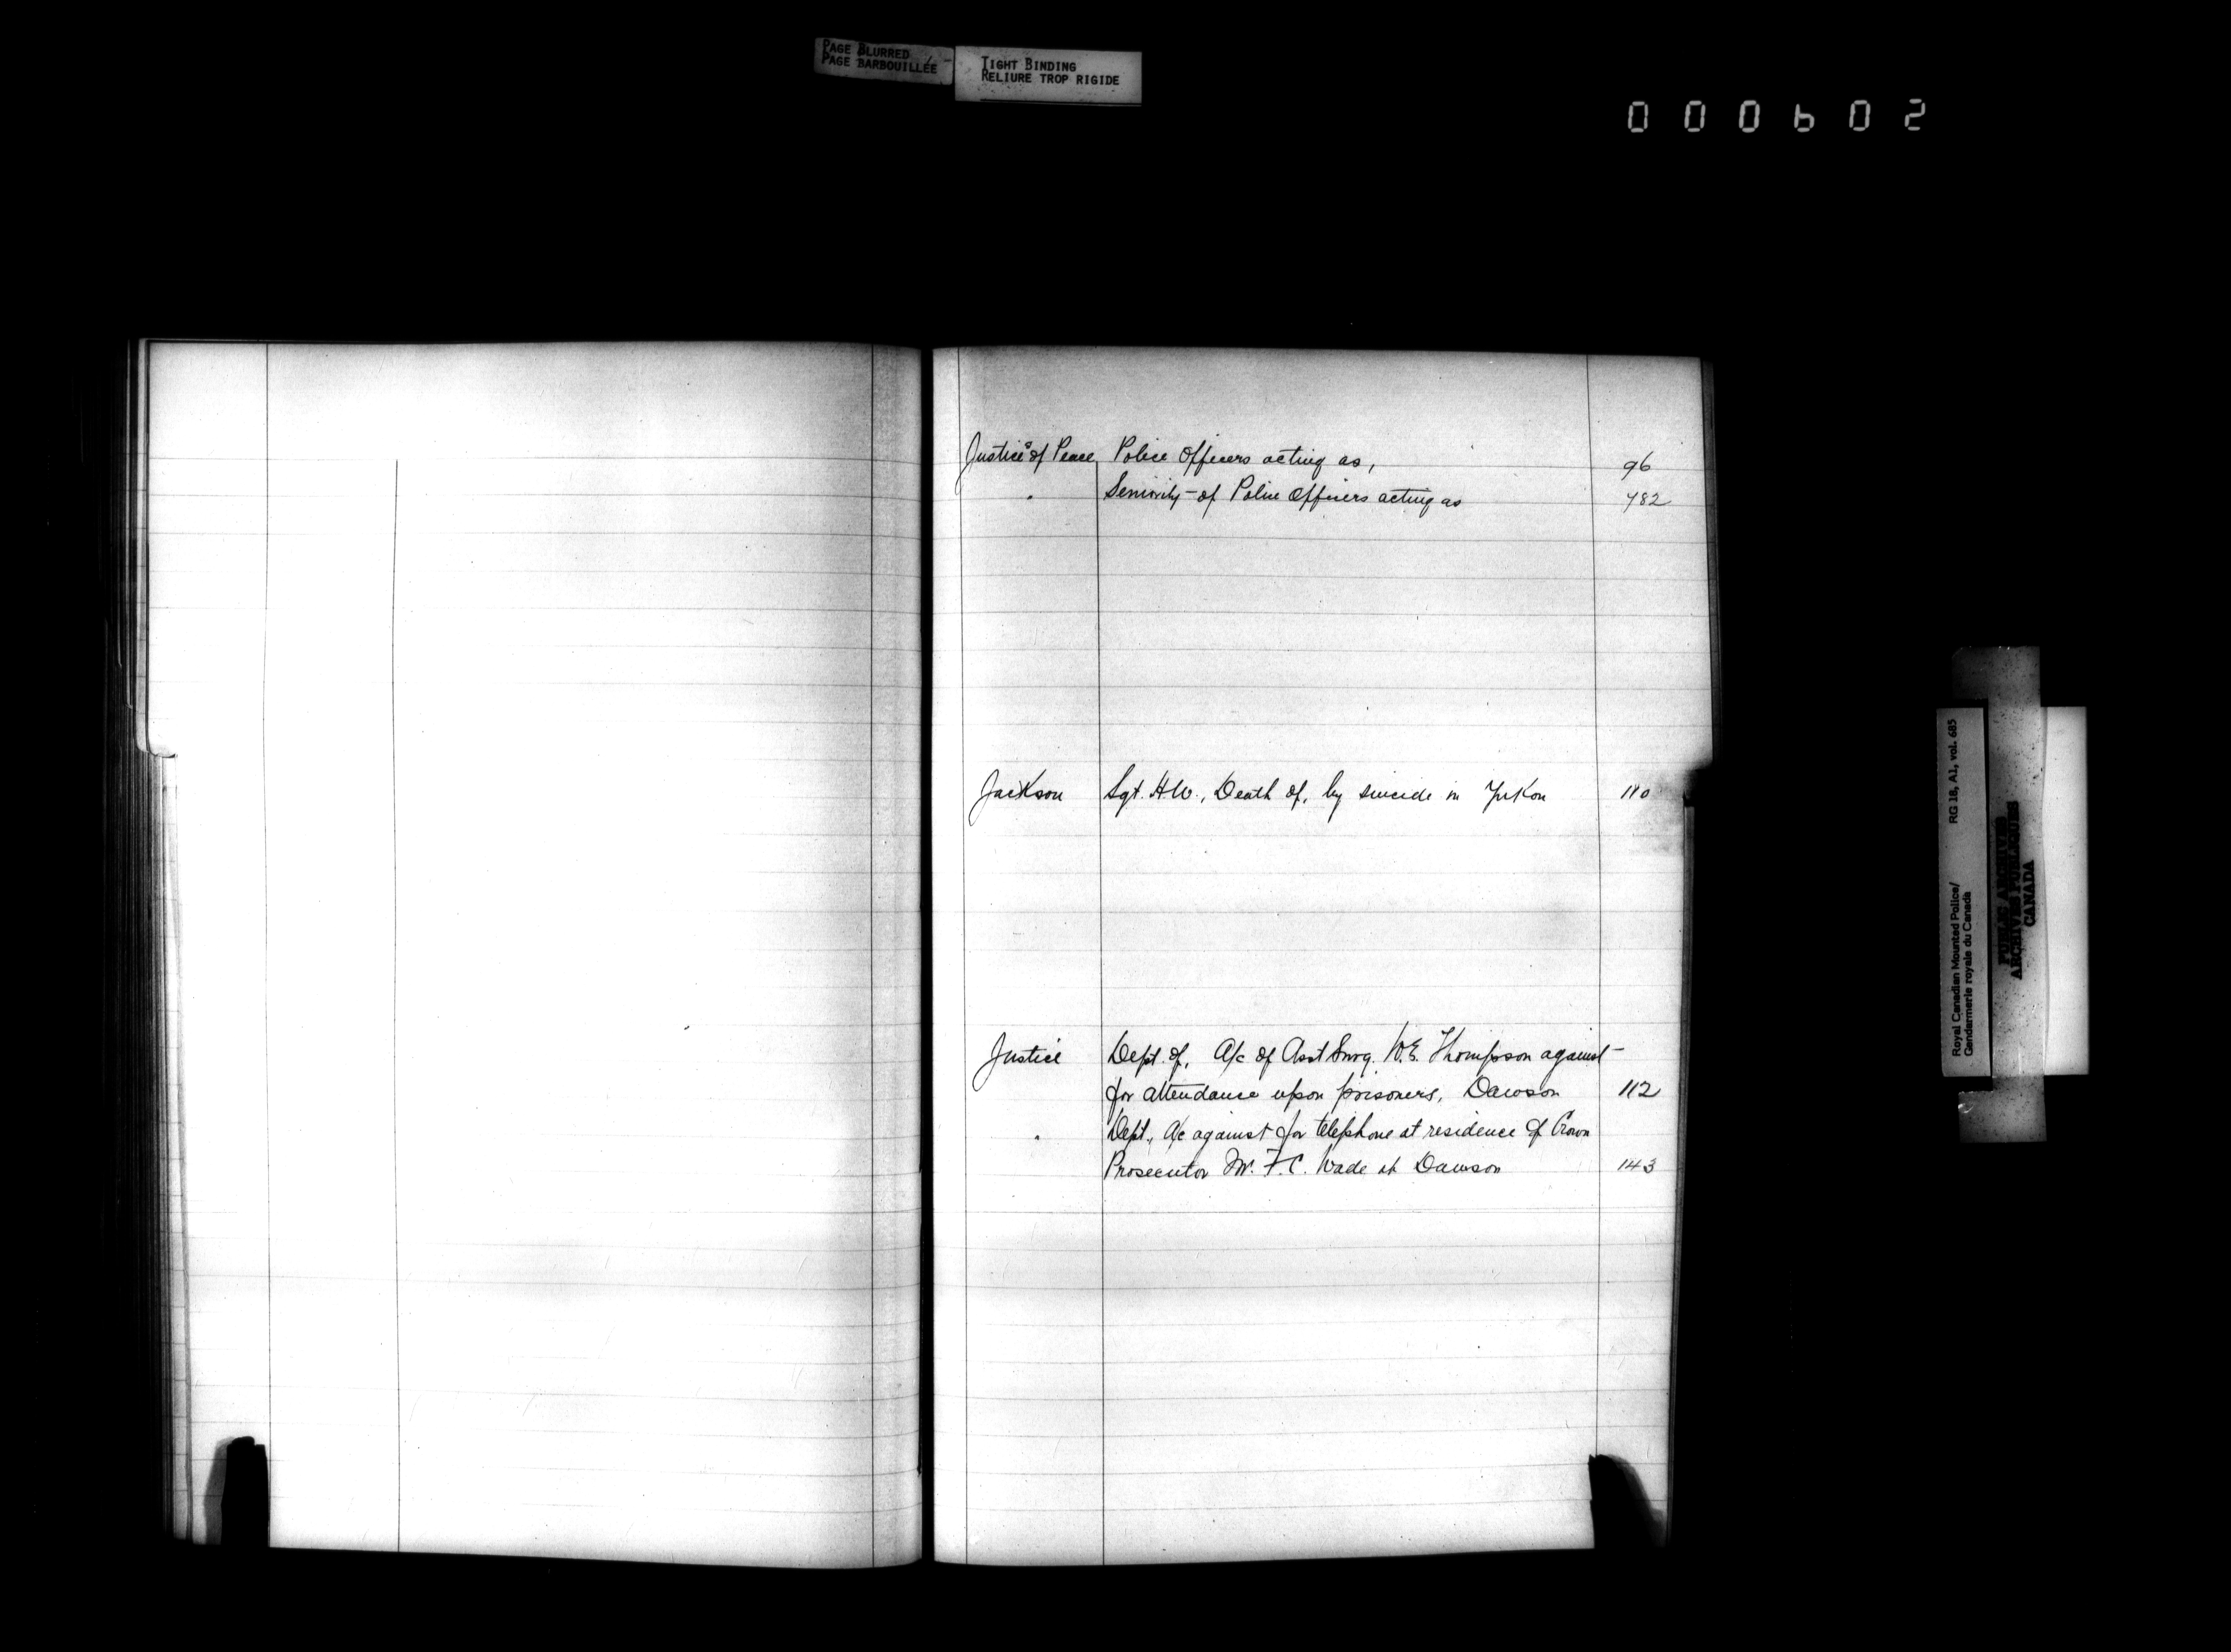 PAGE BLURRED
PAGE BARBOUILLÉE
TIGHT BINDING
RELIURE TROP RIGIDE
000602
Justices of Peace, Police Officers acting as, 96
" Seniority of Police Officers acting as 482
Jackson Sgt. H.W., Death of, by suicide in Yukon 110
Justice Dept. of, A/c of Asst Surg. W.E. Thompson against
for attendance upon prisoners, Dawson 112
" Dept., A/c against for telephone at residence of Crown
Prosecutor Mr. F.C. Wade at Dawson 143
Royal Canadian Mounted Police/ RG 18, A1, vol. 685
Gendarmerie royale du Canada
PUBLIC ARCHIVES
ARCHIVES PUBLIQUES
CANADA